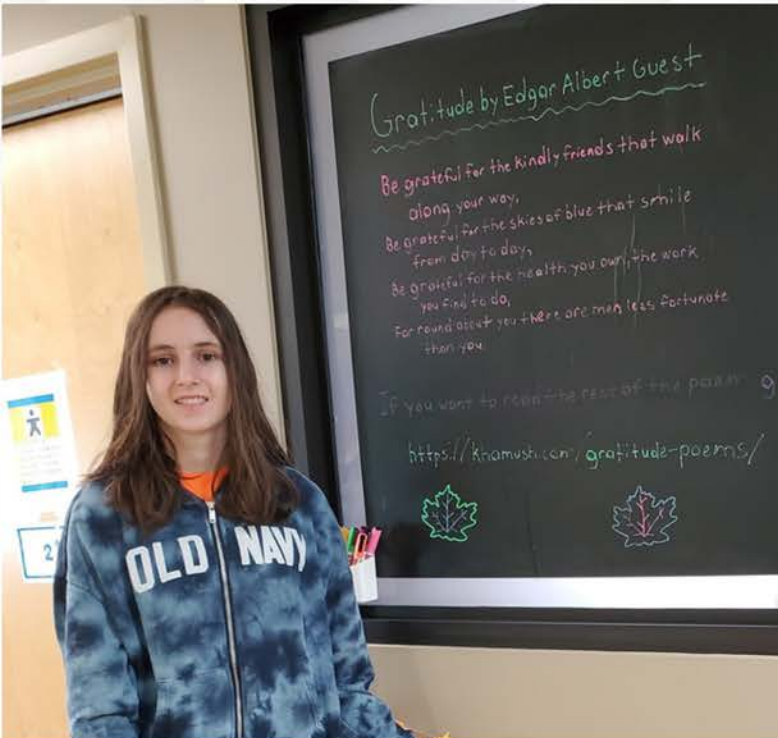 Gratitude by Edgar Albert Guest
Be grateful for the kindly friends that walk
along your way,
Be grateful for the skies of blue that smile
from day to day,
Be grateful for the health you own, the work
you find to do,
For round about you there are men less fortunate
than you.
If you want to read the rest of the poem g
https://khamush.com/gratitude-poems/
OLD NAVY
2